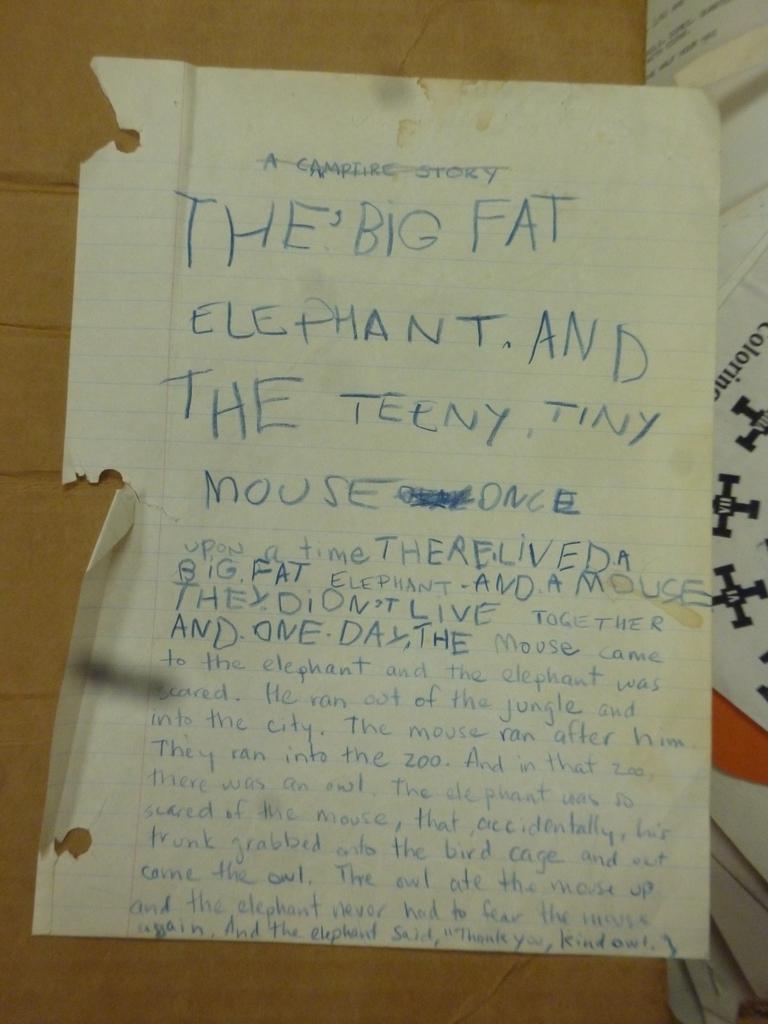 A CAMPFIRE STORY
THE BIG FAT
ELEPHANT. AND
THE TEENY, TINY
MOUSE ONCE
UPON a time THERE.LIVED.A
BIG.FAT ELEPHANT-AND.A MOUSE
THEY.DIDN'T LIVE TOGETHER
AND.ONE.DAY,THE Mouse came
to the elephant and the elephant was
scared. He ran out of the jungle and
into the city. The mouse ran after him.
They ran into the zoo. And in that zoo,
there was an owl. The elephant was so
scared of the mouse, that, accidentally, his
trunk grabbed onto the bird cage and out
came the owl. The owl ate the mouse up
and the elephant never had to fear the mouse
again. And the elephant said, "Thank you, kind owl."
Coloring